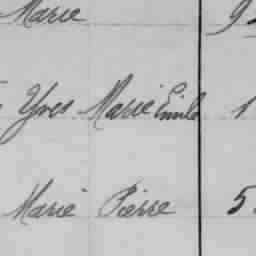 Marie 9
Yves Marie Emile 1
Marie Pierre 5